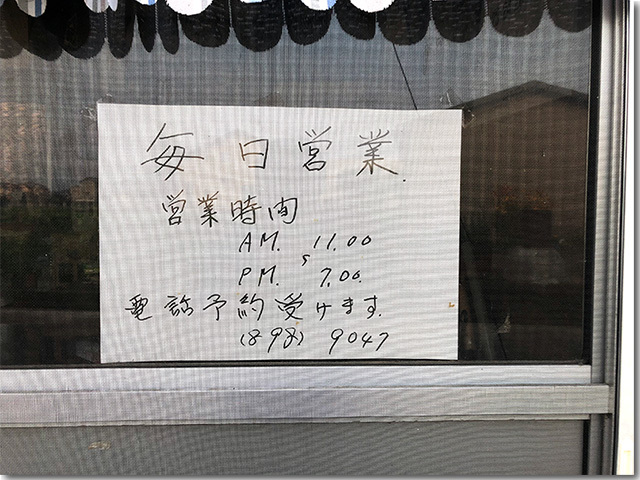 毎日営業.
営業時間
AM. 11.00
〜
PM. 7.00.
電話予約受けます.
(898) 9047